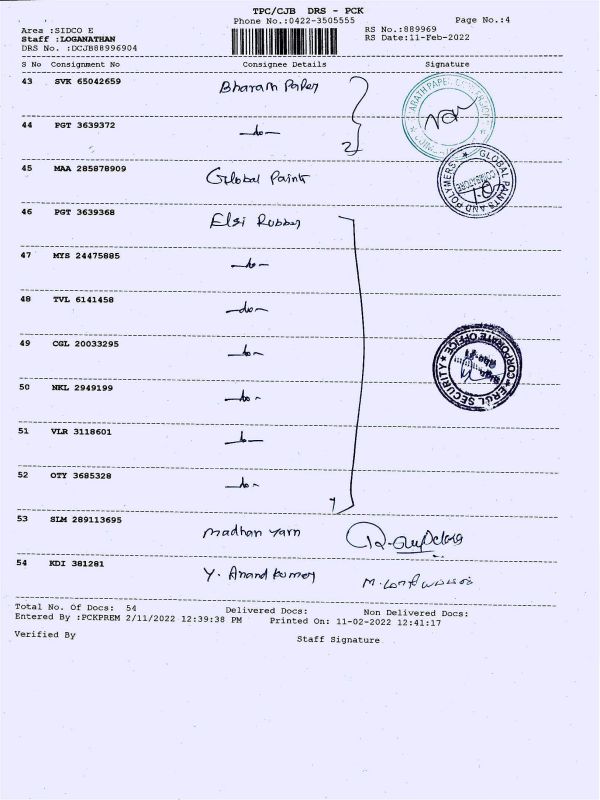 TPC/CJB DRS - PCK
Phone No.:0422-3505555 Page No.:4
Area :SIDCO E RS No.:889969
Staff :LOGANATHAN RS Date:11-Feb-2022
DRS No. :DCJB88996904
S No Consignment No Consignee Details Signature
43 SVK 65042659 Bharath Paper
44 PGT 3639372 —do— 2
45 MAA 285878909 Global Paint
GLOBAL PAINTS AND POLYMERS ★ COIMBATORE
46 PGT 3639368 Elgi Rubber
47 MYS 24475885 —do—
48 TVL 6141458 —do—
49 CGL 20033295 —do—
★ ERGL SECURITY ★ CORPORATE OFFICE
50 NKL 2949199 —do—
51 VLR 3118601 —do—
52 OTY 3685328 —do— 7
53 SLM 289113695 Madhan Yarn
54 KDI 381281 Y. Anand Kumar
Total No. Of Docs: 54 Delivered Docs: Non Delivered Docs:
Entered By :PCKPREM 2/11/2022 12:39:38 PM Printed On: 11-02-2022 12:41:17
Verified By Staff Signature